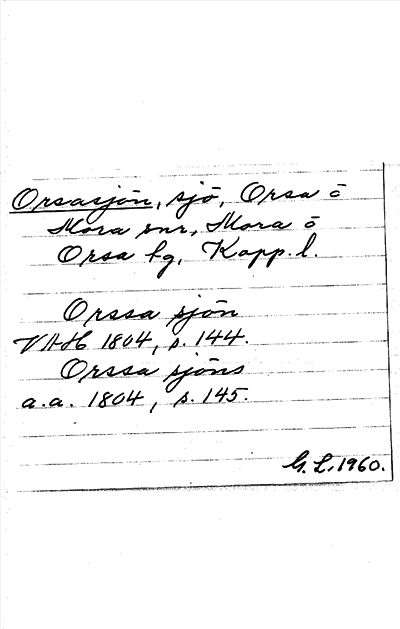 Orsasjön, sjö, Orsa o
Mora snr, Mora o
Orsa tg, Kopp. l.
Orssa sjön
VAH 1804, s. 144.
Orssa sjöns
a.a. 1804, s. 145.
G. L. 1960.